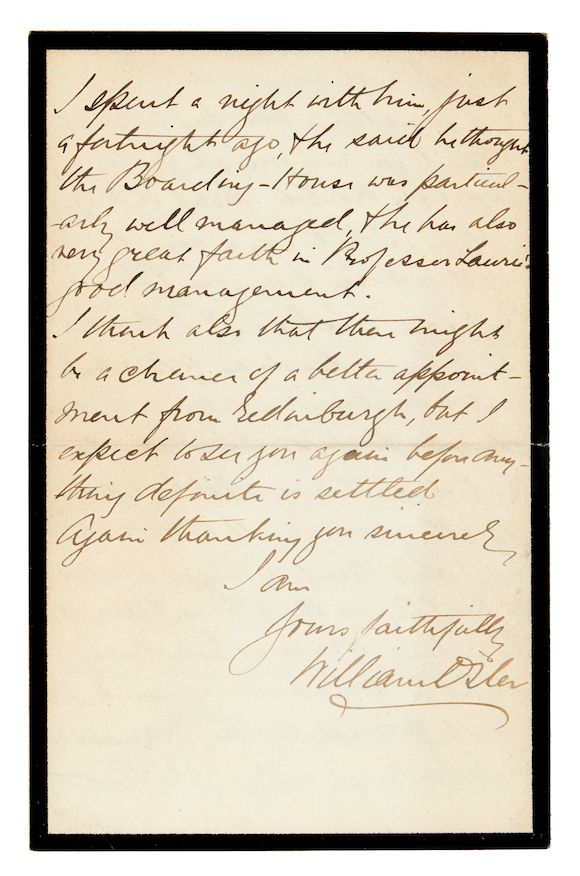 I spent a night with him, just
a fortnight ago, & he said he thought
the Boarding-House was particul-
-arly well managed, & he has also
very great faith in Professor Laurie's
good management.
I think also that there might
be a chance of a better appoint-
ment from Edinburgh, but I
expect to see you again before any-
thing definite is settled
Again thanking you sincerely,
I am
Yours faithfully
William Osler